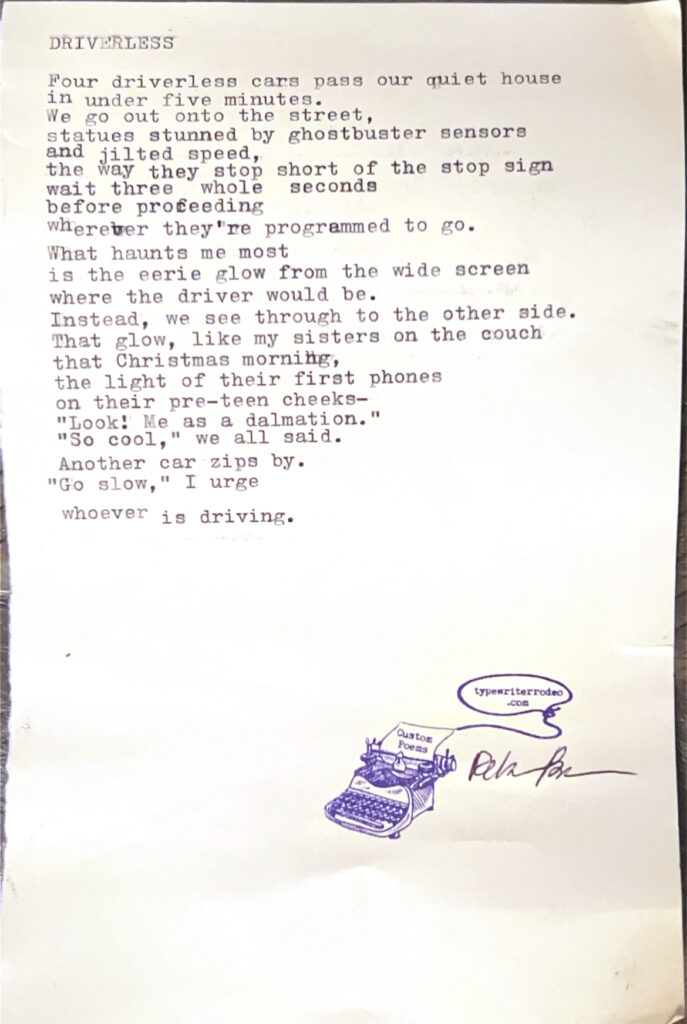 DRIVERLESS
Four driverless cars pass our quiet house
in under five minutes.
We go out onto the street,
statues stunned by ghostbuster sensors
and jilted speed,
the way they stop short of the stop sign
wait three whole seconds
before proceeding
wherever they're programmed to go.
What haunts me most
is the eerie glow from the wide screen
where the driver would be.
Instead, we see through to the other side.
That glow, like my sisters on the couch
that Christmas morning,
the light of their first phones
on their pre-teen cheeks-
"Look! Me as a dalmation."
"So cool," we all said.
Another car zips by.
"Go slow," I urge
whoever is driving.
typewriterrodeo
.com
Custom
Poems